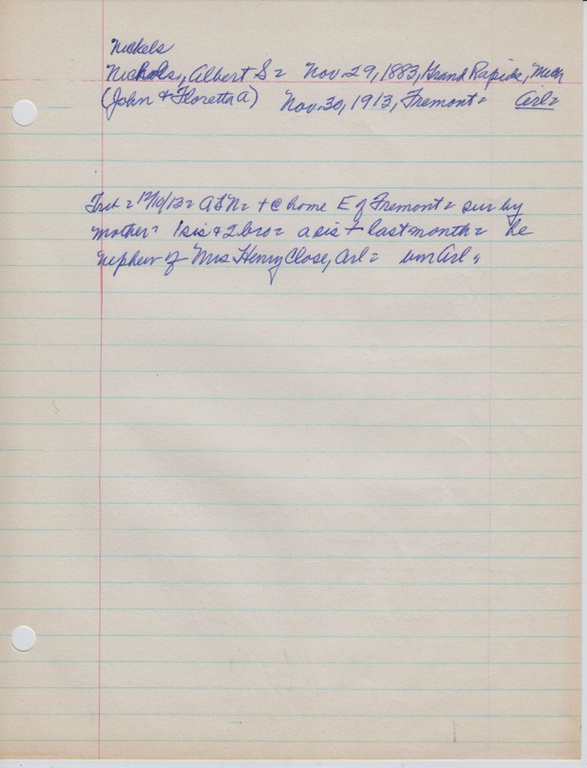 Nickels
Nichols, Albert S = Nov. 29, 1883, Grand Rapids, Mich
(John & Floretta A) Nov. 30, 1913, Fremont = Arl =
Trib = 12/10/13 = ASN = + @ home E of Fremont = sur by
mother = 1 sis & 2 bro = a sis + last month = he
nephew of Mrs Henry Close, Arl = bm Arl =